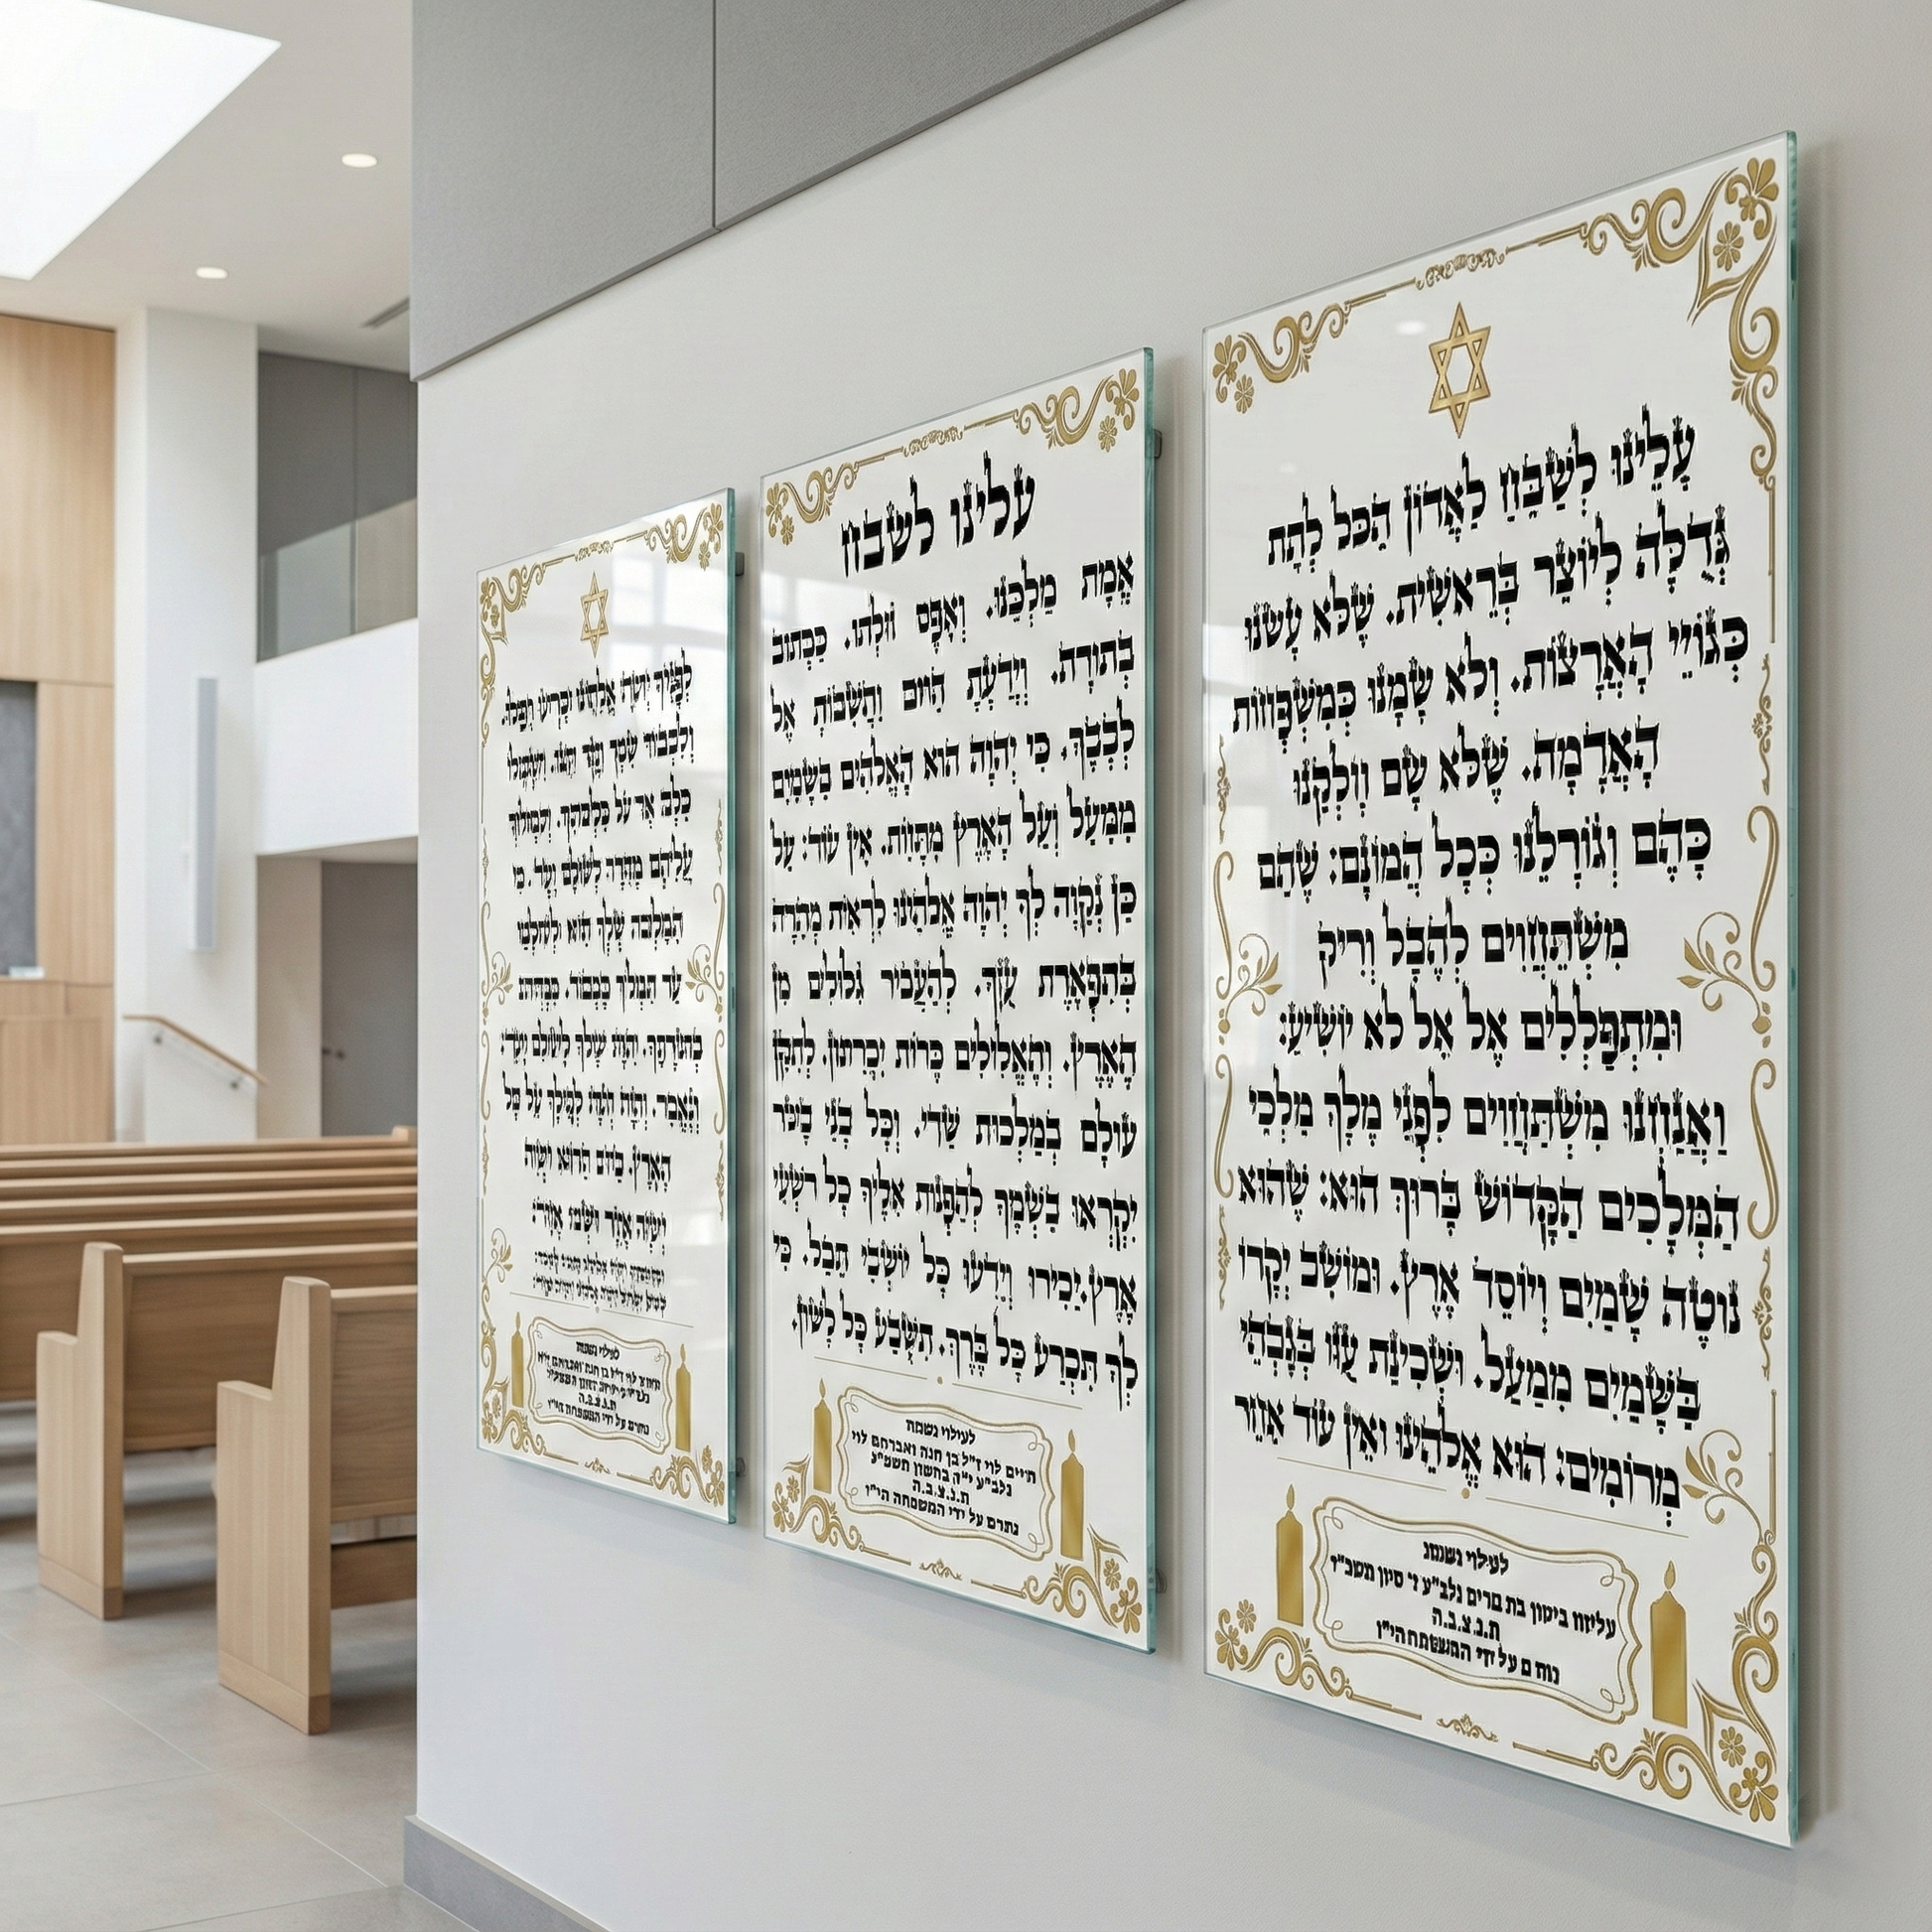 עָלֵינוּ לְשַׁבֵּחַ לַאֲדוֹן הַכֹּל לָתֵת
גְּדֻלָּה לְיוֹצֵר בְּרֵאשִׁית. שֶׁלֹּא עָשָׂנוּ
כְּגוֹיֵי הָאֲרָצוֹת. וְלֹא שָׂמָנוּ כְּמִשְׁפְּחוֹת
הָאֲדָמָה. שֶׁלֹּא שָׂם
כָּהֶם וְגוֹרָלֵנוּ כְּכָל הֲמוֹנָם: שֶׁהֵם
מִשְׁתַּחֲוִים לְהֶבֶל וָרִיק
וּמִתְפַּלְלִים אֶל אֵל לֹא יוֹשִׁיעַ:
וַאֲנַחְנוּ מִשְׁתַּחֲוִים לִפְנֵי מֶלֶךְ מַלְכֵי
הַמְּלָכִים הַקָּדוֹשׁ בָּרוּךְ הוּא: שֶׁהוּא
נוֹטֶה שָׁמַיִם וְיוֹסֵד אָרֶץ. וּמוֹשַׁב יְקָרוֹ
בַּשָּׁמַיִם מִמַּעַל. וּשְׁכִינַת עֻזּוֹ בְּגָבְהֵי
מְרוֹמִים: הוּא אֱלֹהֵינוּ וְאֵין עוֹד אַחֵר
לעילוי נשמת
ביטון בת נלב"ע ז' סיון תשכ"ז
ת.נ.צ.ב.ה
על ידי המשפחה הי"ו
עלינו לשבח
אֱמֶת מַלְכֵּנוּ. וְאֶפֶס זוּלָתוֹ. כַּכָּתוּב
בַּתּוֹרָה. וְיָדַעְתָּ הַיּוֹם וַהֲשֵׁבוֹתָ אֶל
לְבָבֶךָ. כִּי יְהוָה הוּא הָאֱלֹהִים בַּשָּׁמַיִם
מִמַּעַל וְעַל הָאָרֶץ מִתָּחַת. אֵין עוֹד: עַל
כֵּן נְקַוֶּה לְךָ יְהוָה אֱלֹהֵינוּ לִרְאוֹת מְהֵרָה
בְּתִפְאֶרֶת עֻזֶּךָ. לְהַעֲבִיר גִּלּוּלִים מִן
הָאָרֶץ. וְהָאֱלִילִים כָּרוֹת יִכָּרֵתוּן. לְתַקֵּן
עוֹלָם בְּמַלְכוּת שַׁדַּי. וְכָל בְּנֵי בָשָׂר
יִקְרְאוּ בִשְׁמֶךָ לְהַפְנוֹת אֵלֶיךָ כָּל רִשְׁעֵי
אָרֶץ. יַכִּירוּ וְיֵדְעוּ כָּל יוֹשְׁבֵי תֵבֵל. כִּי
לְךָ תִּכְרַע כָּל בֶּרֶךְ. תִּשָּׁבַע כָּל לָשׁוֹן.
לעילוי נשמת
חיים לוי ז"ל בן חנה ואברהם לוי
נלב"ע י"ה בחשון תשמ"ג
ת.נ.צ.ב.ה
נתרם על ידי המשפחה הי"ו
לְפָנֶיךָ יְהוָה אֱלֹהֵינוּ יִכְרְעוּ וְיִפֹּלוּ.
וְלִכְבוֹד שִׁמְךָ יְקָר יִתֵּנוּ. וִיקַבְּלוּ
עֲלֵיהֶם מְהֵרָה לְעוֹלָם וָעֶד. כִּי
הַמַּלְכוּת שֶׁלְּךָ הִיא
עַד תִּמְלֹךְ בְּכָבוֹד. כַּכָּתוּב
בְּתוֹרָתֶךָ. יְהוָה יִמְלֹךְ לְעוֹלָם וָעֶד:
וְנֶאֱמַר. וְהָיָה יְהוָה לְמֶלֶךְ עַל כָּל
הָאָרֶץ. בַּיּוֹם הַהוּא יִהְיֶה
יְהוָה אֶחָד וּשְׁמוֹ אֶחָד:
לעילוי נשמת
ת.נ.צ.ב.ה
נתרם על ידי המשפחה הי"ו